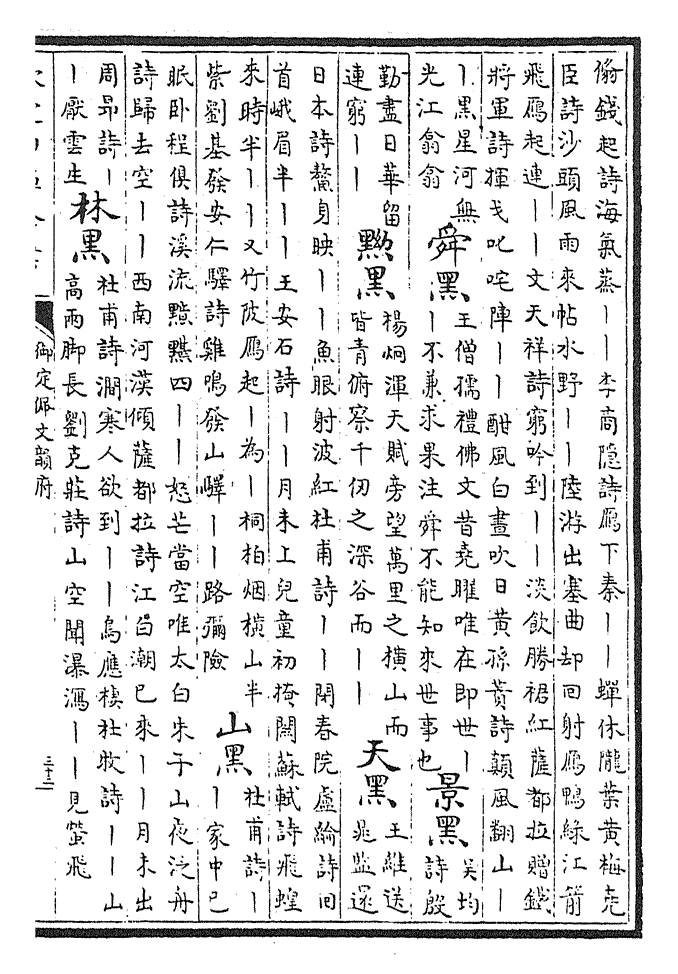 脩錢起詩海氣蒸丨丨李商隱詩鴈下秦丨丨蟬休隴葉黃梅堯
臣詩沙頭風雨來帖水野丨丨陸游出塞曲却回射鴈鴨綠江箭
飛鴈起連丨丨文天祥詩窮吟到丨丨淡飲勝裙紅薩都拉贈錢
將軍詩揮戈叱咤陣丨丨酣風白晝吹日黃孫蕡詩顛風翻山丨
丨黑星河無
光江翁翁
舜黑
王僧孺禮佛文昔堯曜唯在即世丨
丨不兼求果注舜不能知來世事也
景黑
吴均
詩殷
勤盡日華留
連窮丨丨
黝黑
楊炯渾天賦旁望萬里之橫山而
皆青俯察千仞之深谷而丨丨
天黑
王維送
晁監還
日本詩鰲身映丨丨魚眼射波紅杜甫詩丨丨閉春院盧綸詩旧
首峨眉半丨丨王安石詩丨丨月未上兒童初掩關蘇軾詩飛蝗
來時半丨丨又竹陂鴈起丨為丨桐柏烟橫山半
紫劉基發安仁驛詩雞鳴發山驛丨丨路彌險
山黑
杜甫詩丨
丨家中已
眠卧程俱詩溪流黮黮四丨丨怒芒當空唯太白朱子山夜泛舟
詩歸去空丨丨西南河漢傾薩都拉詩江白潮已來丨丨月未出
周昂詩丨
丨厭雲生
林黑
杜甫詩澗寒人欲到丨丨鳥應棲杜牧詩丨丨山
高雨脚長劉克莊詩山空聞瀑瀉丨丨見螢飛
御定佩文韻府